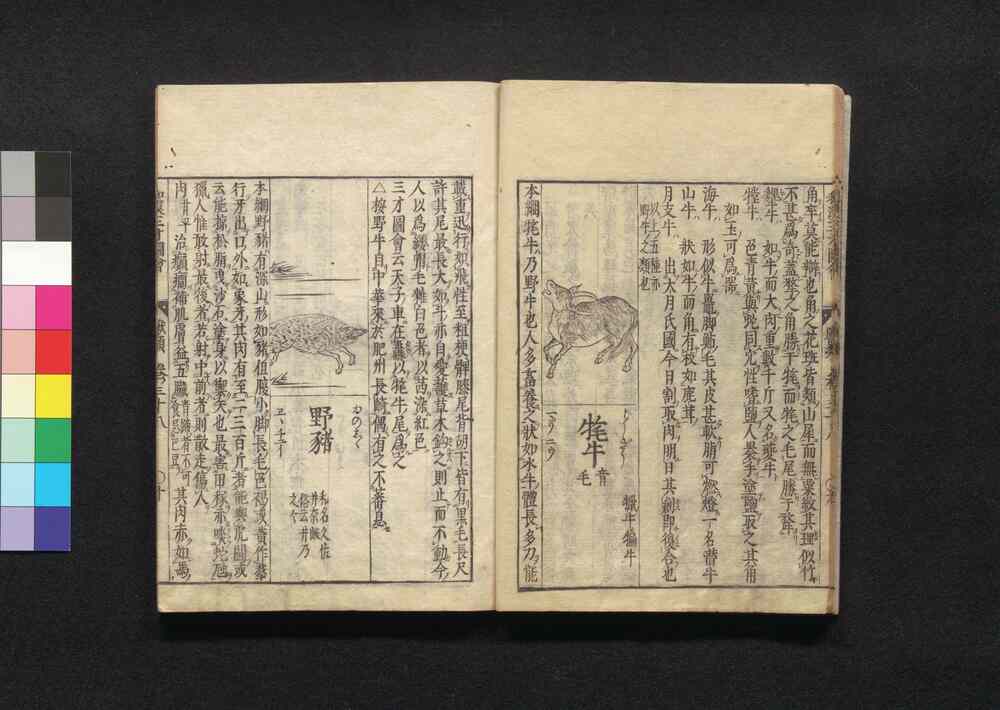 角牢莫能辯也角之花斑皆類山犀而無粟紋其理似竹
不甚爲奇蓋犛之角勝于牦而牦之毛尾勝于犛
犩牛 如牛而大肉重數千斤又名夔牛
㹈牛 色青黄與蛇同穴性嗜鹽人裹手塗鹽取之其角
如玉可爲器
海牛 形似牛鼉脚鮎毛其皮甚軟脂可燃燈一名潜牛
山牛 狀如牛而角有枝如鹿茸
月支牛 出太月氏國今日割取肉明日其創即復合也
以上五種亦
野牛之類也
犣牛 犏牛
牦牛
音
毛
本綱牦牛乃野牛也人多畜養之狀如水牛體長多力能
載重迅行如飛性至粗梗髀膝尾背胡下皆有黒毛長尺
許其尾最長大如斗亦自愛護草木鈎之則止而不動今
人以爲纓帽毛雜白色者以茜染紅色
三才圖會云天子車左纛以牦牛尾爲之
△按野牛自中華來於肥州長﨑偶有之不蕃息
野豬
ゐのしし
和名久佐
井奈岐
俗云井乃
之之
本綱野豬有深山形如豬但腹小脚長毛色褐或黄作羣
行牙出口外如象牙其肉有至二三百斤者能與虎鬬或
云能掠松脂曳沙石塗身以禦矢也最害田稼亦噉蛇虺
獵人惟敢射最後者若射中前者則散走傷人
肉 甘平 治癲癇補肌膚益五臟 青蹄者不可
食忌巴豆 其肉亦如馬